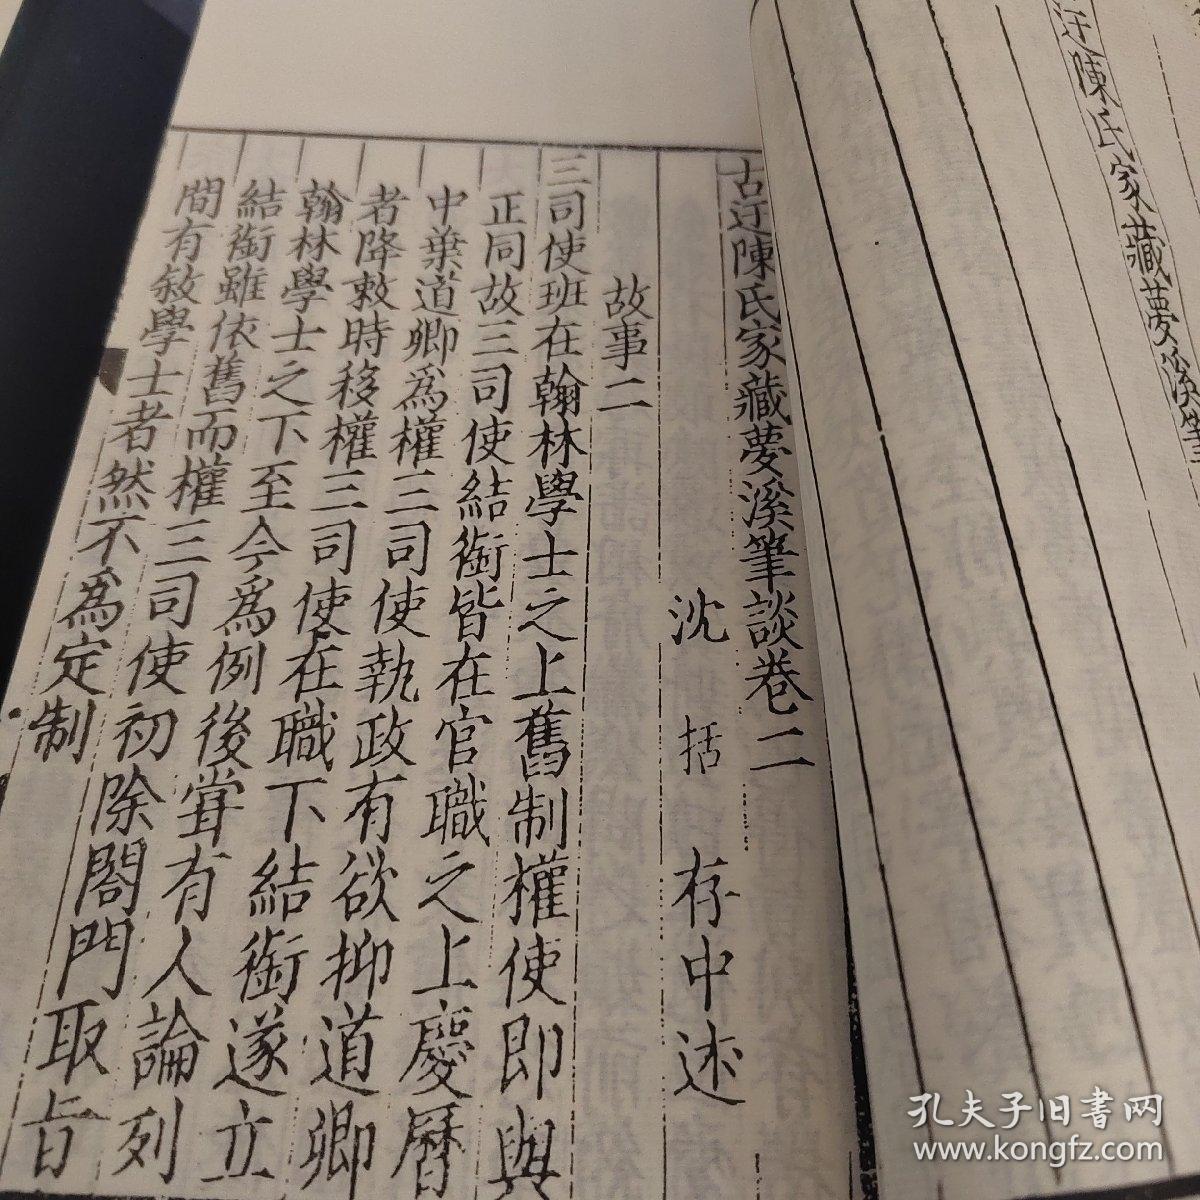 迂陳氏家藏夢溪筆
古迂陳氏家藏夢溪筆談卷二
沈括存中述
故事二
三司使班在翰林學士之上舊制權使即與
正同故三司使結銜皆在官職之上慶曆
中葉道卿為權三司使執政有欲抑道卿
者降敕時移權三司使在職下結銜遂立
翰林學士之下至今為例後嘗有人論列
結銜雖依舊而權三司使初除閤門取旨
間有敘學士者然不為定制
孔夫子旧書网
www.kongfz.com